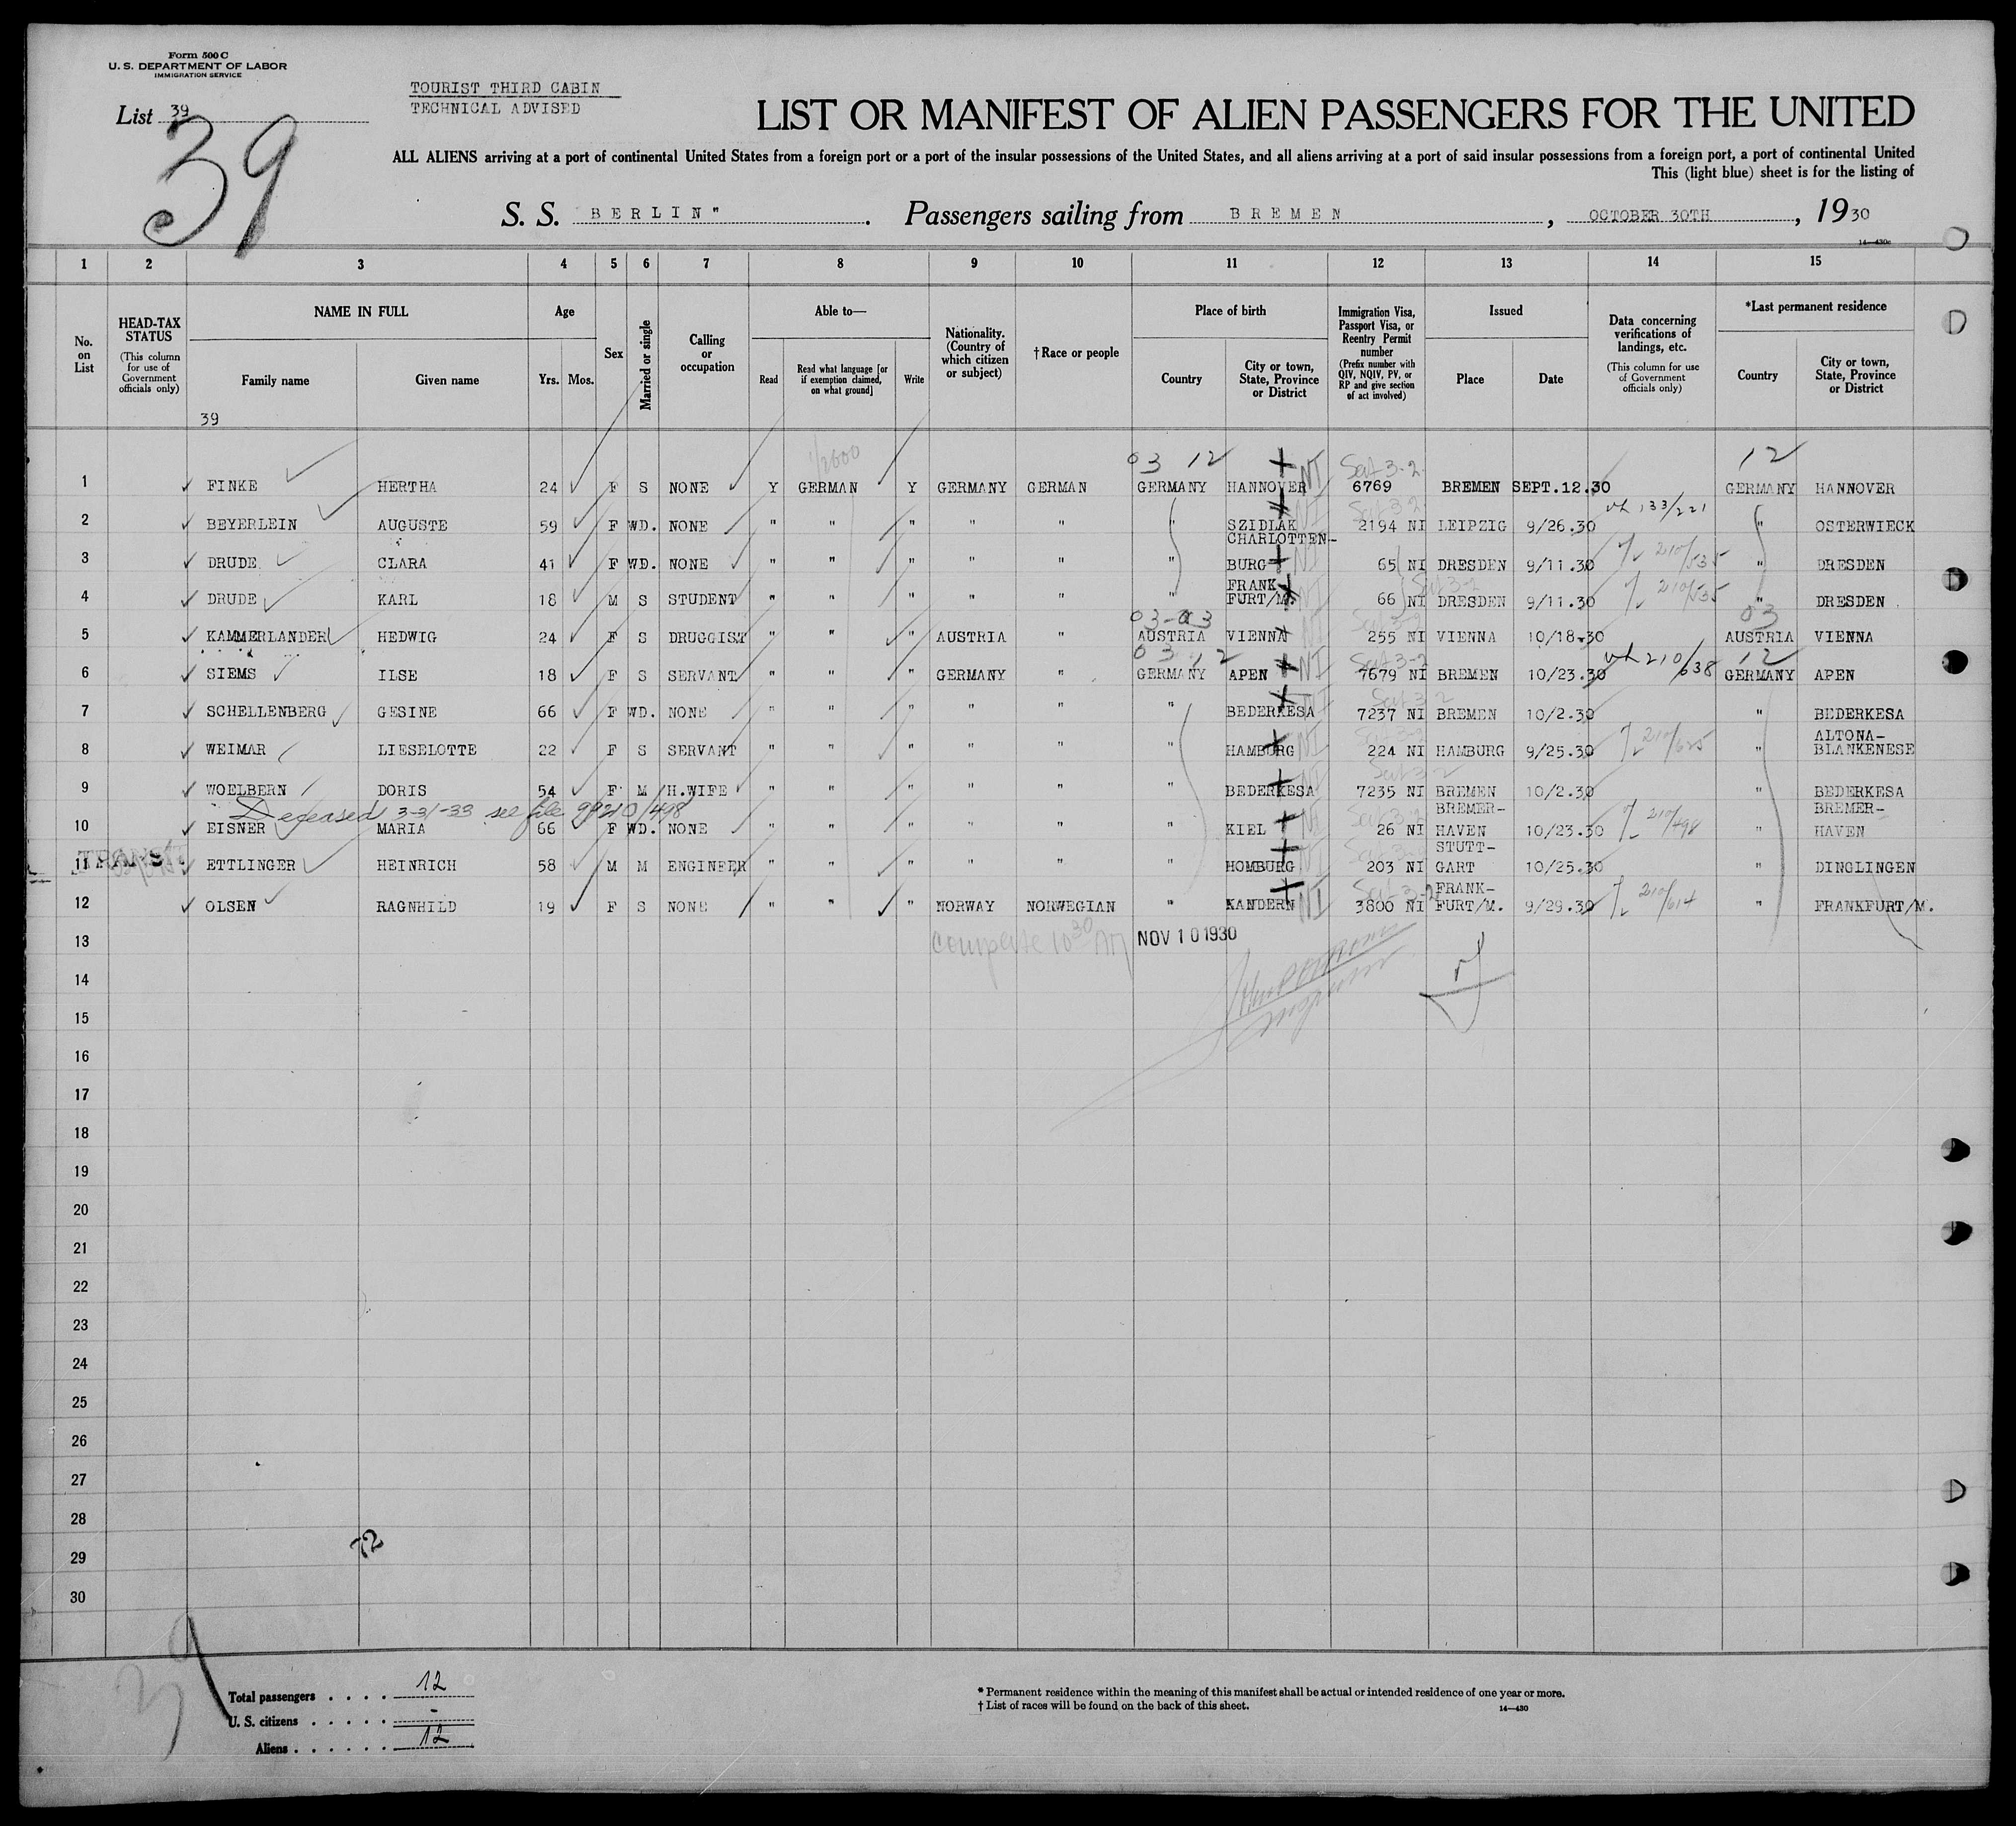 Form 500 C
U. S. DEPARTMENT OF LABOR
IMMIGRATION SERVICE
List 39
39
TOURIST THIRD CABIN
TECHNICAL ADVISED
LIST OR MANIFEST OF ALIEN PASSENGERS FOR THE UNITED
ALL ALIENS arriving at a port of continental United States from a foreign port or a port of the insular possessions of the United States, and all aliens arriving at a port of said insular possessions from a foreign port, a port of continental United
This (light blue) sheet is for the listing of
S. S. BERLIN" . Passengers sailing from BREMEN , OCTOBER 30TH , 1930
14—430c
1 2 3 4 5 6 7 8 9 10 11 12 13 14 15
No. on List
HEAD-TAX STATUS (This column for use of Government officials only)
NAME IN FULL Family name Given name
Age Yrs. Mos.
Sex
Married or single
Calling or occupation
Able to— Read Read what language [or if exemption claimed, on what ground] Write
Nationality. (Country of which citizen or subject)
† Race or people
Place of birth Country City or town, State, Province or District
Immigration Visa, Passport Visa, or Reentry Permit number (Prefix number with QIV, NQIV, PV, or RP and give section of act involved)
Issued Place Date
Data concerning verifications of landings, etc. (This column for use of Government officials only)
*Last permanent residence Country City or town, State, Province or District
39
03 12 12
1 FINKE HERTHA 24 F S NONE Y GERMAN Y GERMANY GERMAN GERMANY HANNOVER NI 6769 BREMEN SEPT.12.30 GERMANY HANNOVER
2 BEYERLEIN AUGUSTE 59 F WD. NONE " " " " " " SZIDLAK 2194 NI LEIPZIG 9/26.30 133/221 " OSTERWIECK
3 DRUDE CLARA 41 F WD. NONE " " " " " " CHARLOTTEN-BURG 65 NI DRESDEN 9/11.30 210/535 " DRESDEN
4 DRUDE KARL 18 M S STUDENT " " " " " " FRANK FURT/M. 66 NI DRESDEN 9/11.30 210/535 " DRESDEN
03-03 03
5 KAMMERLANDER HEDWIG 24 F S DRUGGIST " " " AUSTRIA " AUSTRIA VIENNA 255 NI VIENNA 10/18.30 AUSTRIA VIENNA
03 12 12
6 SIEMS ILSE 18 F S SERVANT " " " GERMANY " GERMANY APEN NI 7679 NI BREMEN 10/23.30 210/638 GERMANY APEN
7 SCHELLENBERG GESINE 66 F WD. NONE " " " " " " BEDERKESA 7237 NI BREMEN 10/2.30 " BEDERKESA
8 WEIMAR LIESELOTTE 22 F S SERVANT " " " " " " HAMBURG NI 224 NI HAMBURG 9/25.30 " ALTONA-BLANKENESE
9 WOELBERN DORIS 54 F M H.WIFE " " " " " " BEDERKESA 7235 NI BREMEN 10/2.30 " BEDERKESA
Deceased 3-31-33 see file 99210/498
10 EISNER MARIA 66 F WD. NONE " " " " " " KIEL NI 26 NI BREMER-HAVEN 10/23.30 210/498 " BREMER-HAVEN
11 ETTLINGER HEINRICH 58 M M ENGINEER " " " " " " HOMBURG NI 203 NI STUTT-GART 10/25.30 " DINGLINGEN
12 OLSEN RAGNHILD 19 F S NONE " " " NORWAY NORWEGIAN " KANDERN NI 3800 NI FRANK-FURT/M. 9/29.30 210/614 " FRANKFURT/M.
13 NOV 10 1930
14
15
16
17
18
19
20
21
22
23
24
25
26
27
28
29
30
72
39
Total passengers . . . . 12
U. S. citizens . . . . . -
Aliens . . . . . . 12
* Permanent residence within the meaning of this manifest shall be actual or intended residence of one year or more.
† List of races will be found on the back of this sheet.
14—430